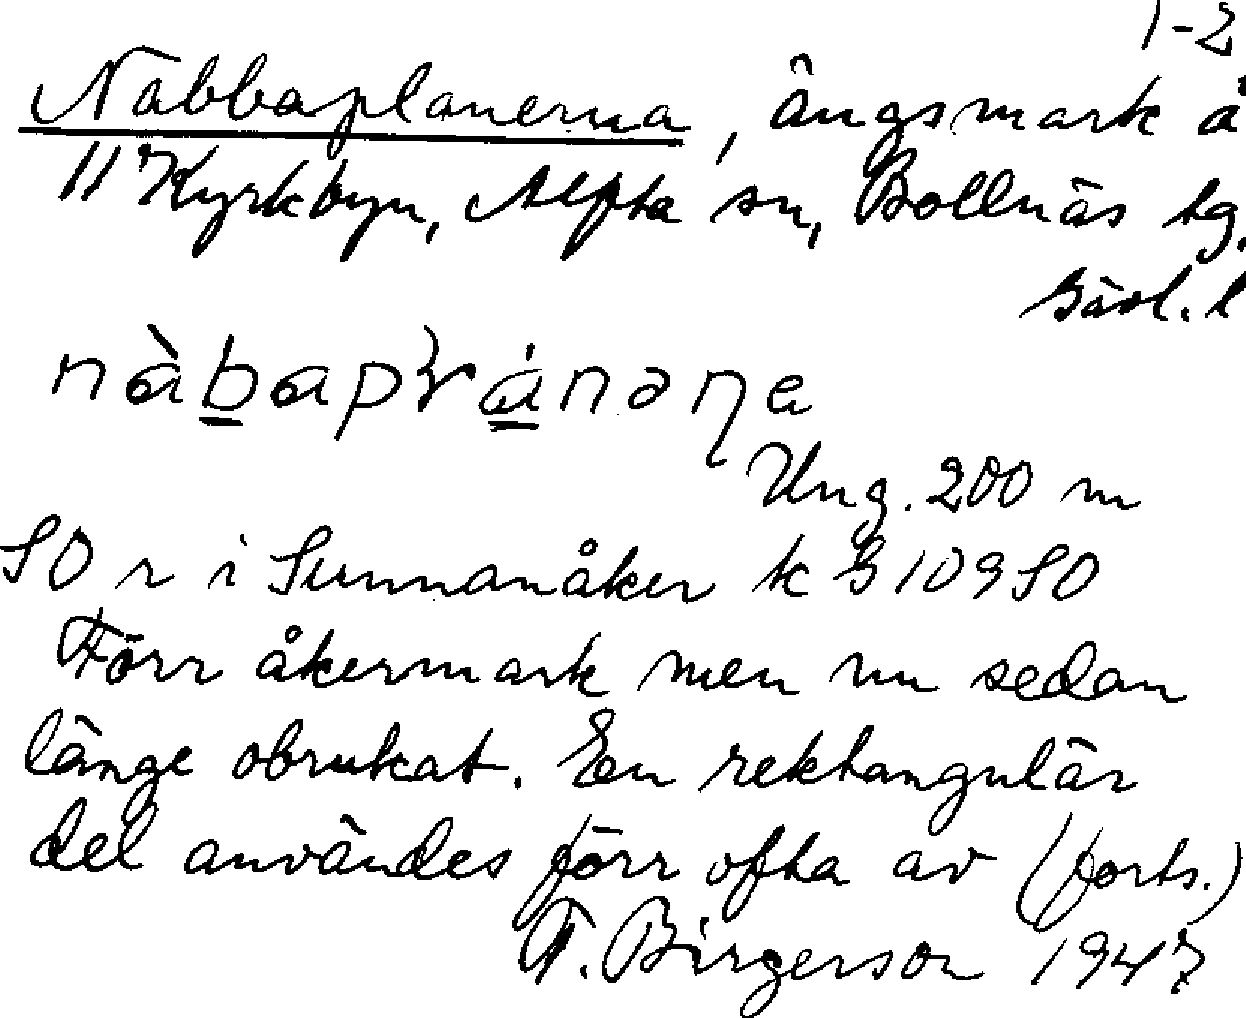 1-2
Nabbaplanerna, ängsmark å
11 Kyrkbyn, Alfta sn, Bollnäs tg.
Gävl. l
Ung. 200 m
SO r i Sunnanåker k G 109 SO
Förr åkermark men nu sedan
länge obrukat. En rektangulär
del användes förr ofta av (forts.)
F. Birgerson 1947